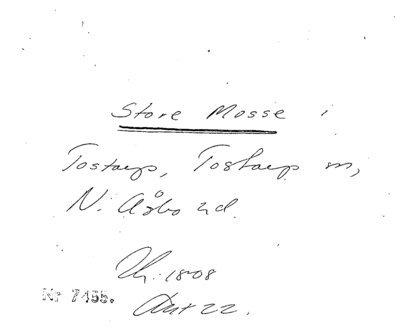 Store Mosse i
Tostarp, Tostarp sn,
N. Åsbo hd.
1808
Akt 22.
Nr 7455.